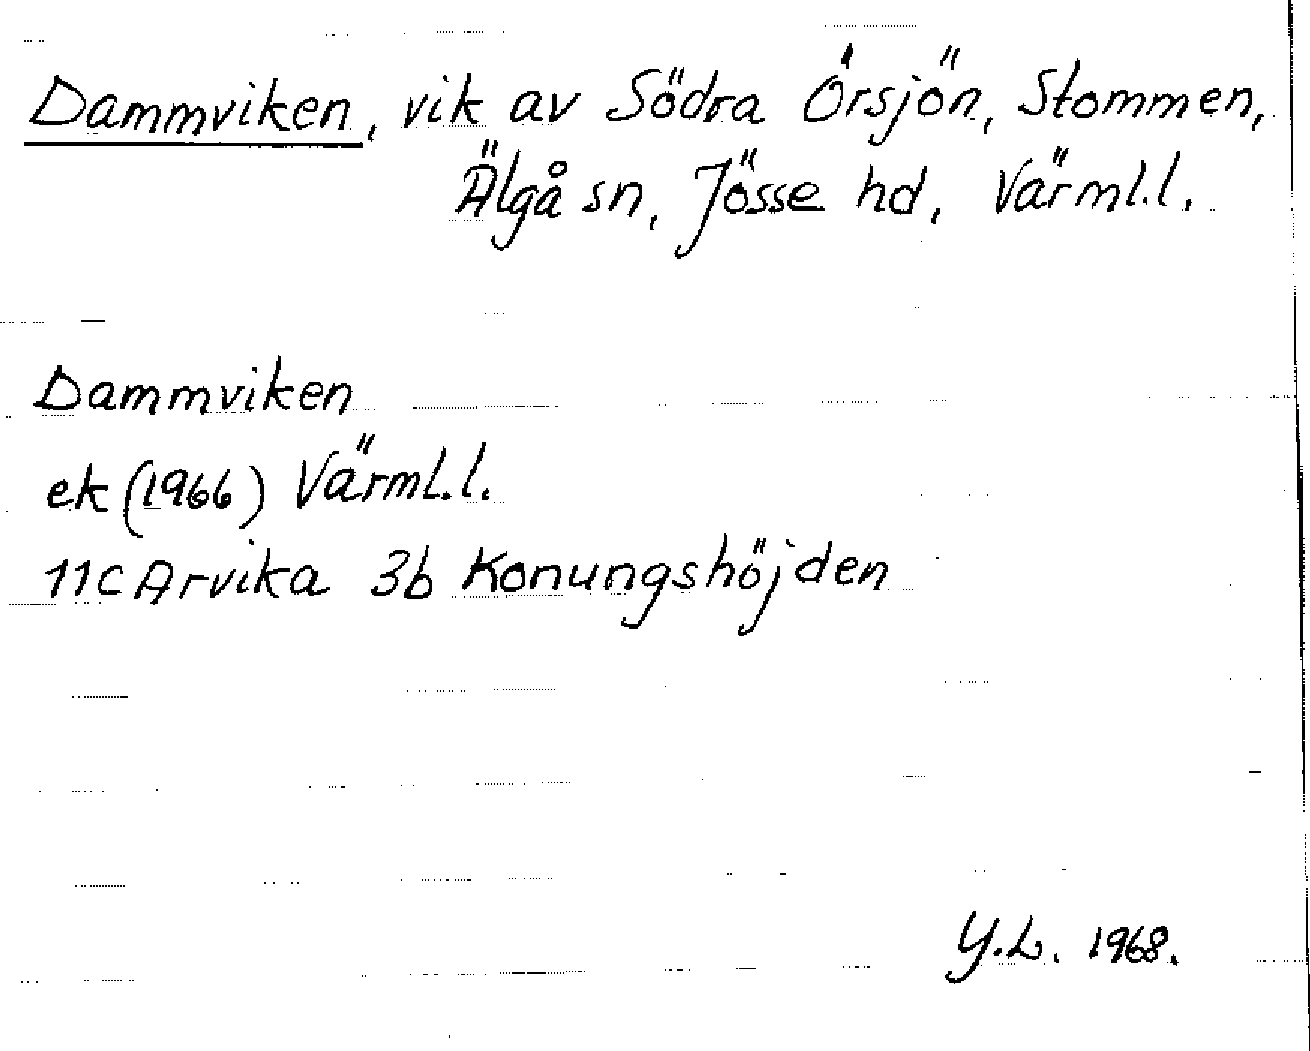 Dammviken, vik av Södra Örsjön, Stommen,
Älgå sn, Jösse hd, Värml.l.
Dammviken
ek (1966) Värml.l.
11C Arvika 3b Konungshöjden
Y.L. 1968.